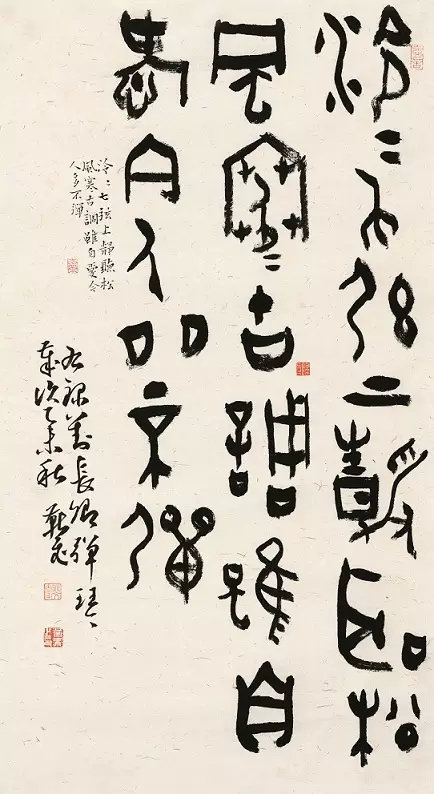 泠〻七弦上靜聽松
風寒古調雖自
愛今人多不彈
泠〻七弦上靜聽松
風寒古調雖自愛今
人多不彈
右錄劉長卿彈琴
歲次乙未秋